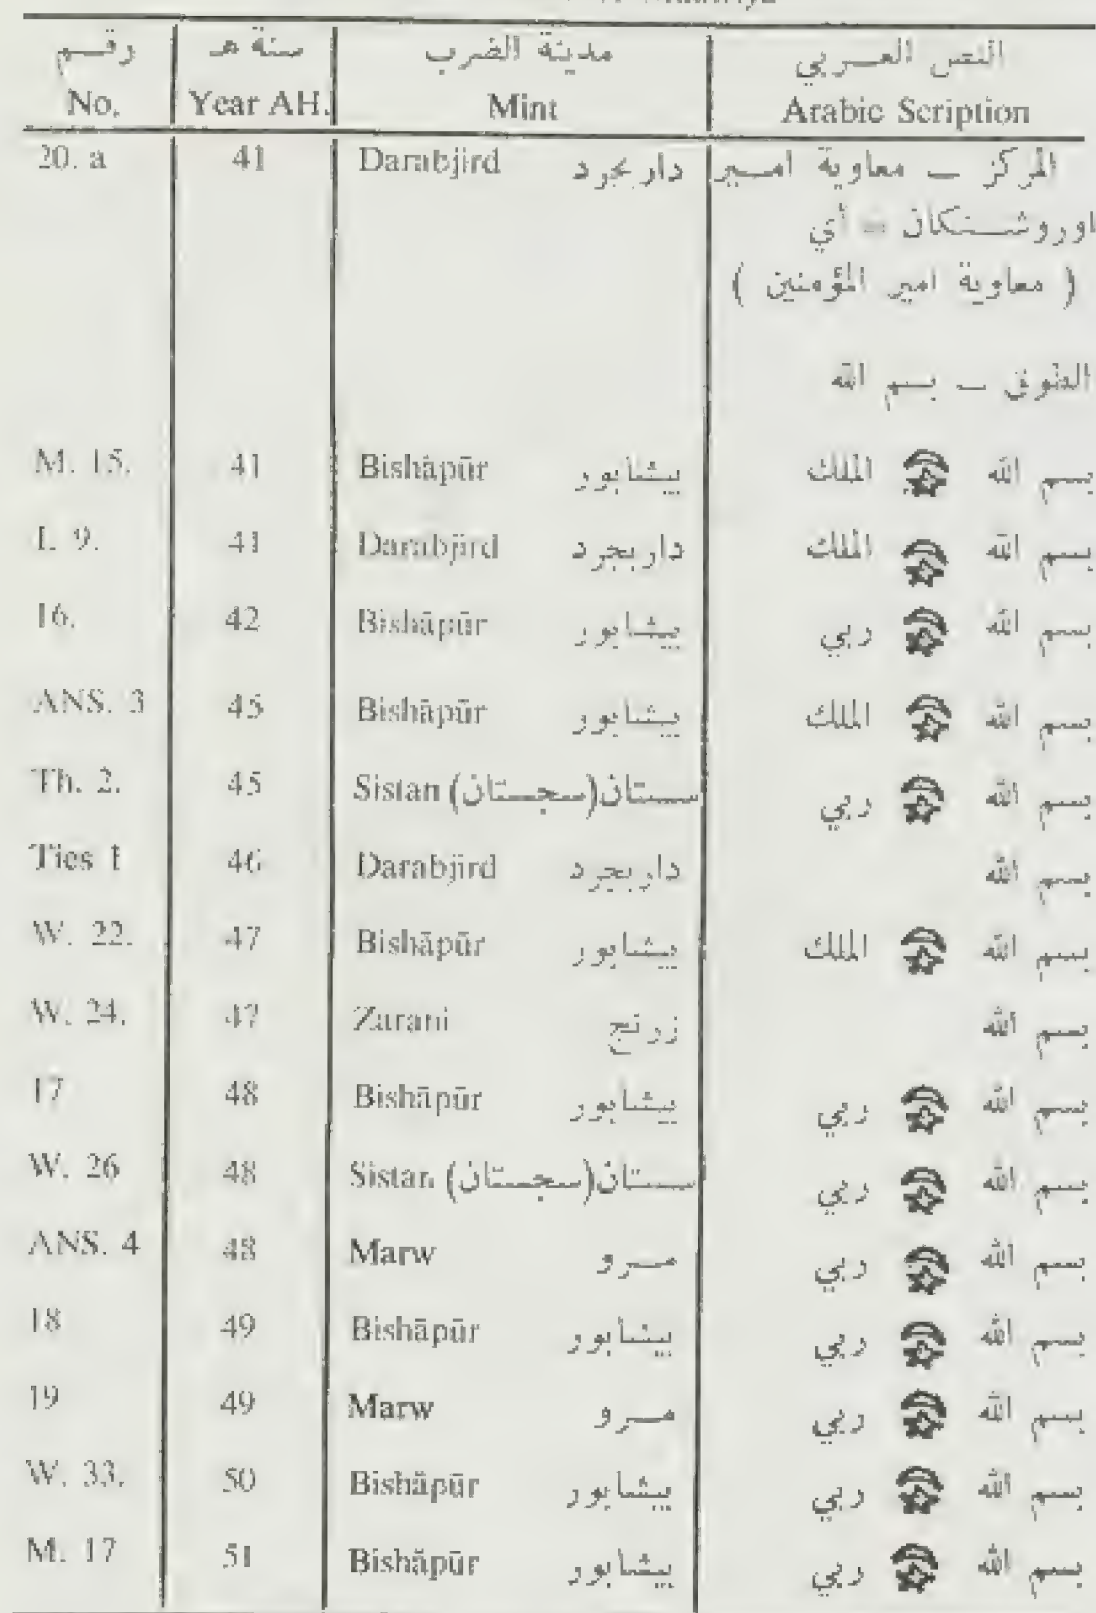 رقم سنة هـ مدينة الضرب النص العربي
No. Year AH. Mint Arabic Scription
20. a 41 Darabjird داربجرد المركز – معاوية امير
اوروشنكان = أي
( معاوية امير المؤمنين )
الطوق – بسم الله
M. 15. 41 Bishāpūr بيشابور بسم الله الملك
I. 9. 41 Darabjird داربجرد بسم الله الملك
16. 42 Bishāpūr بيشابور بسم الله ربي
ANS. 3 45 Bishāpūr بيشابور بسم الله الملك
Th. 2. 45 Sistan سستان (سجستان) بسم الله ربي
Ties 1 46 Darabjird داربجرد بسم الله
W. 22. 47 Bishāpūr بيشابور بسم الله الملك
W. 24. 47 Zarani زرنج بسم الله
17 48 Bishāpūr بيشابور بسم الله ربي
W. 26 48 Sistan سستان (سجستان) بسم الله ربي
ANS. 4 48 Marw مرو بسم الله ربي
18 49 Bishāpūr بيشابور بسم الله ربي
19 49 Marw مرو بسم الله ربي
W. 33. 50 Bishāpūr بيشابور بسم الله ربي
M. 17 51 Bishāpūr بيشابور بسم الله ربي